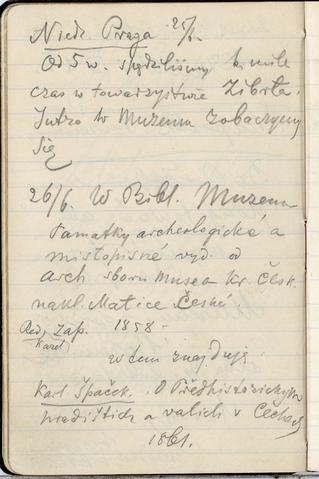 Niedz. Praga 25/6.
Od 5 w. spędziliśmy b. mile
czas w towarzystwie Zibrta.
Jutro w Muzeum zobaczymy
się
26/6. W Bibl. Muzeum
Památky archeologické a
místopisné vyd. od
arch sboru Musea kr. Česk.
nakl. Matice České
Red. Zap. 1858 -
Karel
w tem znajduję
Karl Špaček. O Předhistorickým
hradištích a valích v Čechách
1861.